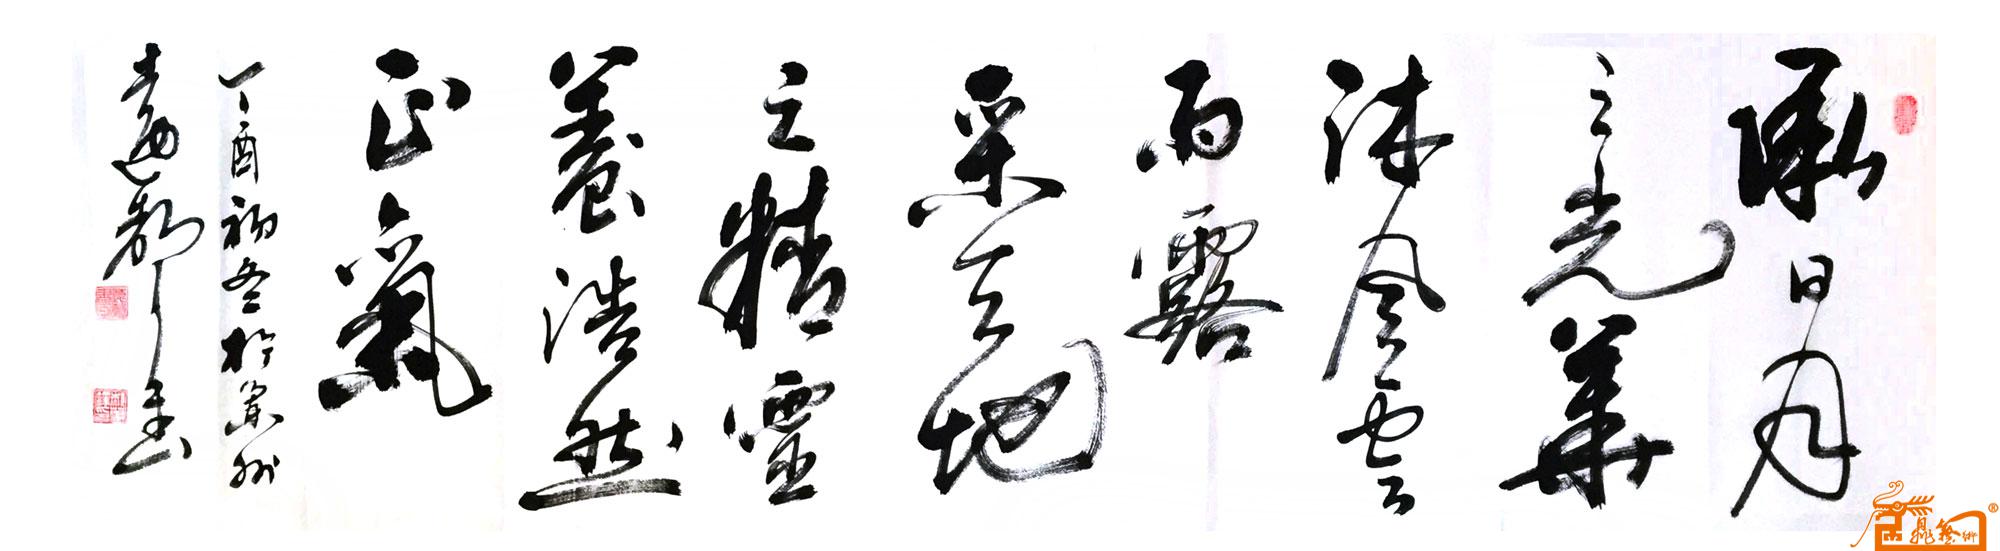 承日月
之光華
沐风雲
雨露
采天地
之精靈
養浩然
正氣
丁酉初冬於